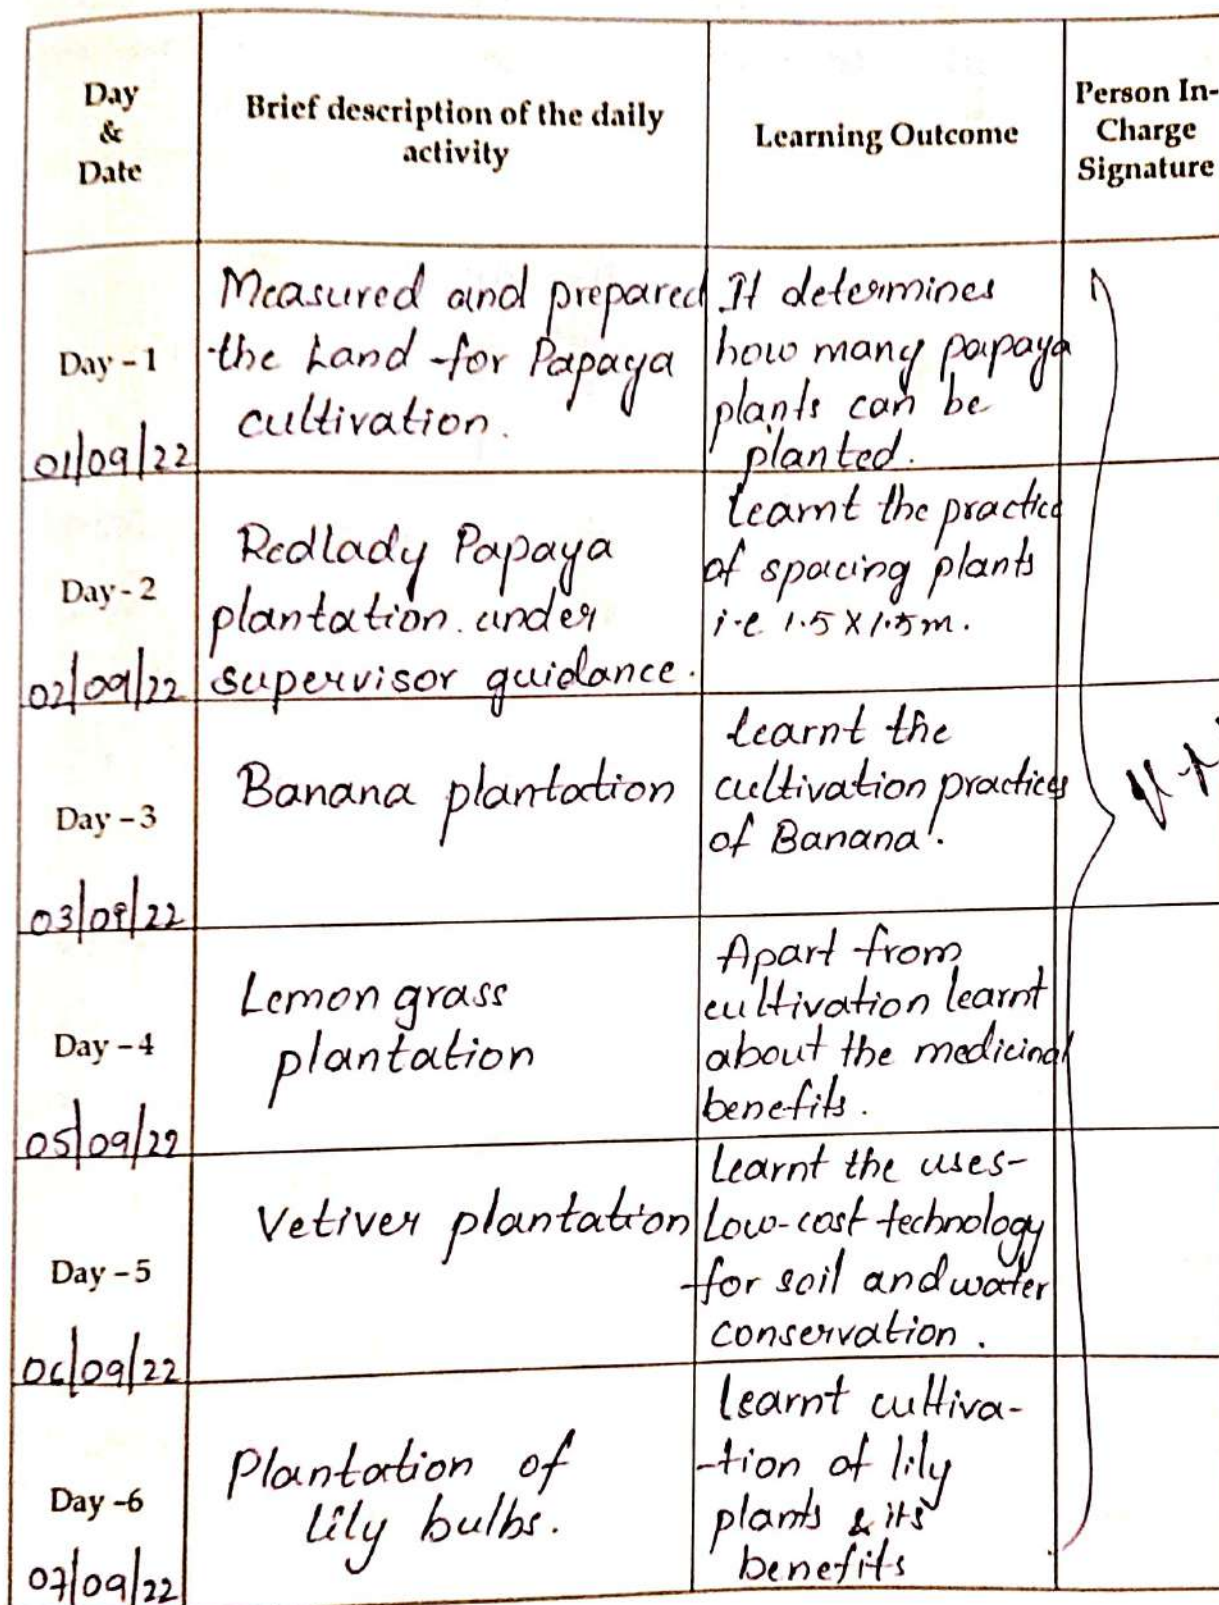 Day
&
Date
Brief description of the daily
activity
Learning Outcome
Person In-
Charge
Signature
Day - 1
01/09/22
Measured and prepared
the Land for Papaya
cultivation.
It determines
how many papaya
plants can be
planted.
Day - 2
02/09/22
Redlady Papaya
plantation. under
supervisor guidance.
Learnt the practice
of spacing plants
i.e 1.5 X 1.5m.
Day - 3
03/09/22
Banana plantation
Learnt the
cultivation practices
of Banana.
Day - 4
05/09/22
Lemon grass
plantation
Apart from
cultivation learnt
about the medicinal
benefits.
Day - 5
06/09/22
Vetiver plantation
Learnt the uses-
Low-cost technology
for soil and water
conservation.
Day -6
07/09/22
Plantation of
Lily bulbs.
Learnt cultiva-
-tion of lily
plants & its
benefits